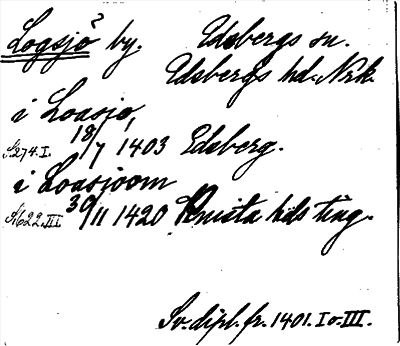 Logsjö by. Edsbergs sn.
Edsbergs hd. Nrk.
i Loasjo,
S. 274. I. 18/7 1403 Edsberg.
i Loasjoom
S. 622. III 30/11 1420 Knista hds ting.
Sv. dipl. fr. 1401. I o. III.